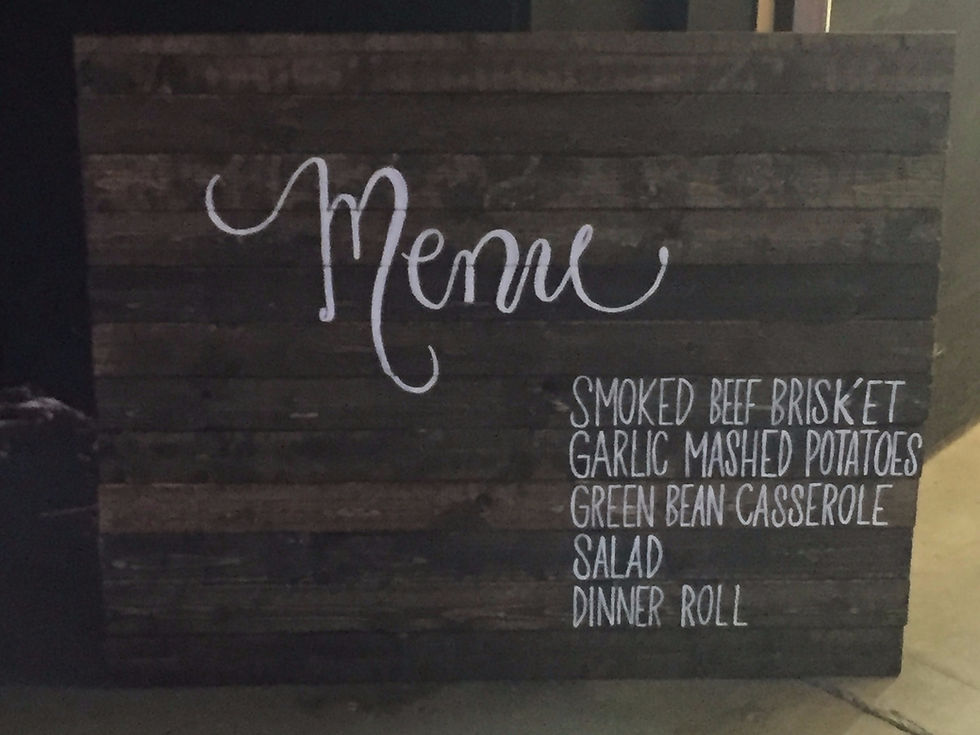 Menu
SMOKED BEEF BRISKET
GARLIC MASHED POTATOES
GREEN BEAN CASSEROLE
SALAD
DINNER ROLL